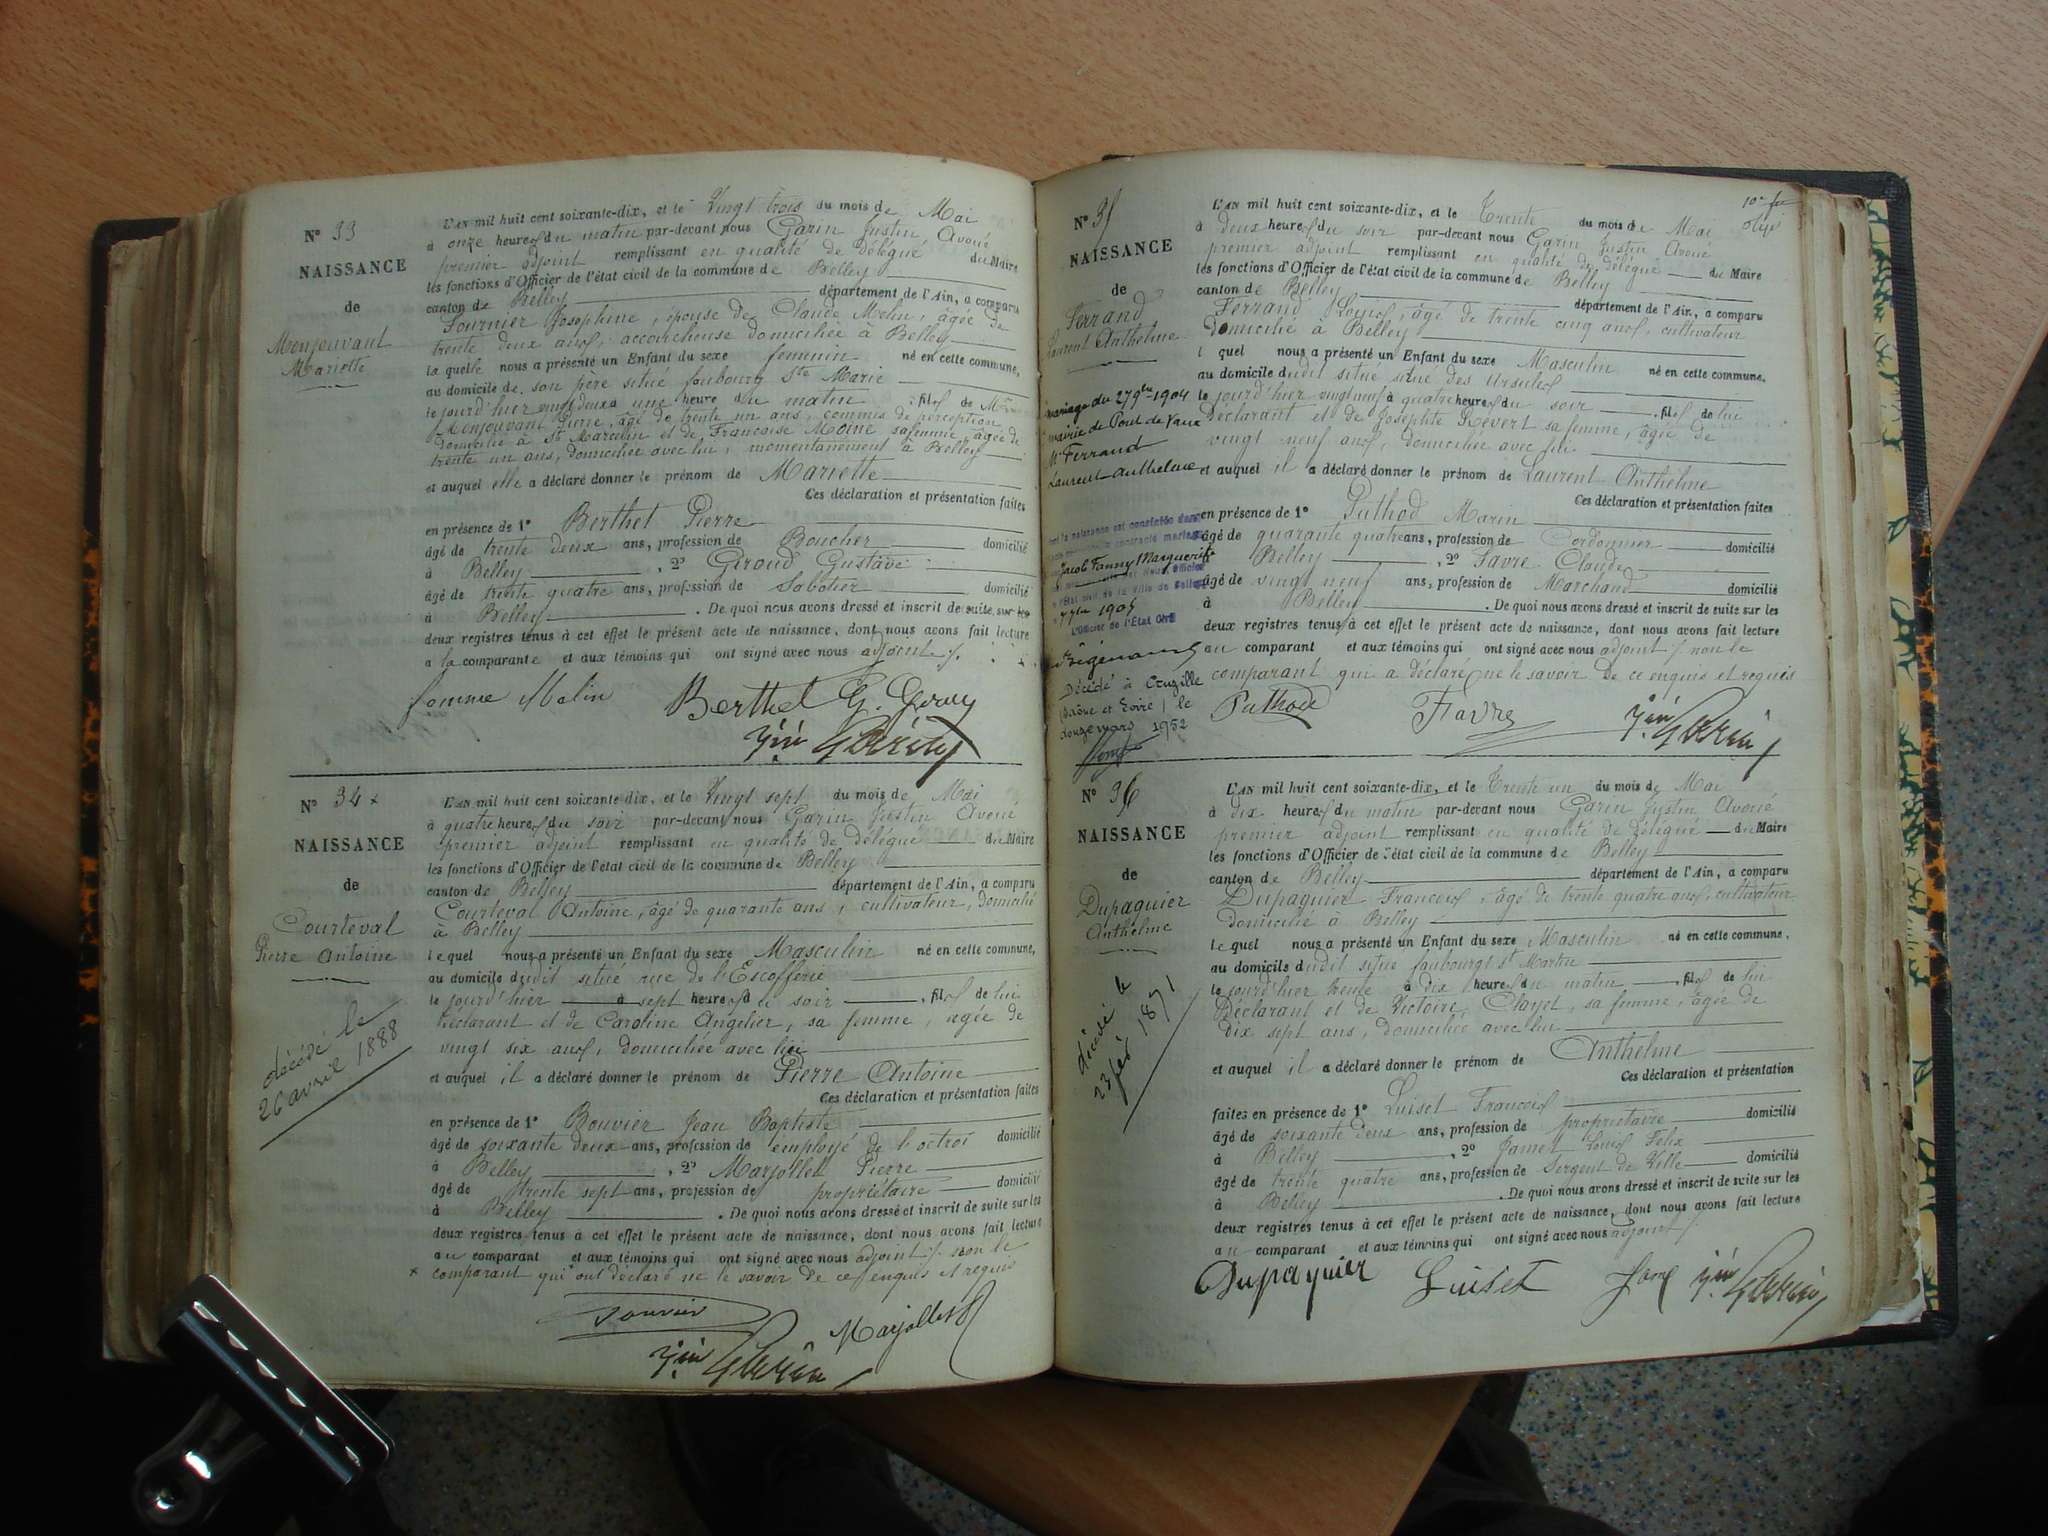 N° 33
NAISSANCE
de
Monjouvant
Mariette
L'AN mil huit cent soixante-dix, et le Vingt trois du mois de Mai
à onze heures du matin par-devant nous Garin Justin Avoué
premier adjoint remplissant en qualité de Délégué du Maire
les fonctions d'Officier de l'état civil de la commune de Belley
canton de Belley département de l'Ain, a comparu
Fournier Josephine, épouse de Claude Melin, âgée de
trente deux ans, accoucheuse domiciliée à Belley
la quelle nous a présenté un Enfant du sexe feminin né en cette commune,
au domicile de son père situé faubourg Ste Marie
le jourd'hier vingt deux à une heure du matin, fils de
Monjouvant Pierre, âgé de trente un ans, commis de perception
domicilié à St Marcelin et de Françoise Moine sa femme, âgée de
trente un ans, domiciliée avec lui, momentanément à Belley
et auquel elle a déclaré donner le prénom de Mariette
Ces déclaration et présentation faites
en présence de 1° Berthet Pierre
âgé de trente deux ans, profession de Boucher domicilié
à Belley, 2° Giroud Gustave
âgé de trente quatre ans, profession de Sabotier domicilié
à Belley. De quoi nous avons dressé et inscrit de suite sur les
deux registres tenus à cet effet le présent acte de naissance, dont nous avons fait lecture
a la comparante et aux témoins qui ont signé avec nous adjoint
femme Melin Berthet G.
Jin Garin
N° 34 x
NAISSANCE
de
Courteval
Pierre Antoine
décédé le
26 avril 1888
L'AN mil huit cent soixante-dix, et le Vingt sept du mois de Mai
à quatre heures du soir par-devant nous Garin Justin Avoué
premier adjoint remplissant en qualité de délégué du Maire
les fonctions d'Officier de l'état civil de la commune de Belley
canton de Belley département de l'Ain, a comparu
Courteval Antoine, âgé de quarante ans, cultivateur, domicilié
à Belley
le quel nous a présenté un Enfant du sexe Masculin né en cette commune,
au domicile dudit situé rue de l'Escofferie
le jourd'hier à sept heures du soir, fils de lui
Déclarant et de Caroline Angelier, sa femme, âgée de
vingt six ans, domiciliée avec lui
et auquel il a déclaré donner le prénom de Pierre Antoine
Ces déclaration et présentation faites
en présence de 1° Bouvier Jean Baptiste
âgé de soixante deux ans, profession de employé de l'octroi domicilié
à Belley, 2° Marjollet Pierre
âgé de trente sept ans, profession de propriétaire domicilié
à Belley. De quoi nous avons dressé et inscrit de suite sur les
deux registres tenus à cet effet le présent acte de naissance, dont nous avons fait lecture
au comparant et aux témoins qui ont signé avec nous adjoint / non le
x comparant qui ont déclaré ne le savoir de ce enquis et requis
Bouvier Marjollet
Jin Garin
N° 35
NAISSANCE
de
Ferrand
Laurent Anthelme
mariage du 27 9bre 1904
mairie de Pont de Vaux
Mr Ferrand
Laurent Anthelme
Jacob Fanny Marguerite
l'État civil de la Ville de Belley
1905
L'Officier de l'État Civil
Décédé à Cruzille
(Saône et Loire) le
douze mars 1952
L'AN mil huit cent soixante-dix, et le Trente du mois de Mai
à deux heures du soir par-devant nous Garin Justin Avoué
premier adjoint remplissant en qualité de délégué du Maire
les fonctions d'Officier de l'état civil de la commune de Belley
canton de Belley département de l'Ain, a comparu
Ferrand Louis, âgé de trente cinq ans, cultivateur
domicilié à Belley
l quel nous a présenté un Enfant du sexe Masculin né en cette commune,
au domicile dudit situé des Ursules
le jourd'hier vingt neuf à quatre heures du soir, fils de lui
Déclarant et de Josephte Revert sa femme, âgée de
vingt neuf ans, domiciliée avec lui
et auquel il a déclaré donner le prénom de Laurent Anthelme
Ces déclaration et présentation faites
en présence de 1° Puthod Marin
âgé de quarante quatre ans, profession de Cordonnier domicilié
à Belley, 2° Favre Claude
âgé de vingt neuf ans, profession de Marchand domicilié
à Belley. De quoi nous avons dressé et inscrit de suite sur les
deux registres tenus à cet effet le présent acte de naissance, dont nous avons fait lecture
au comparant et aux témoins qui ont signé avec nous adjoint / non le
comparant qui a déclaré ne le savoir de ce enquis et requis
Puthod Favre Jin Garin
N° 36
NAISSANCE
de
Dupaquier
Anthelme
décédé le
23 fév 1871
L'AN mil huit cent soixante-dix, et le Trente un du mois de Mai
à dix heures du matin par-devant nous Garin Justin Avoué
premier adjoint remplissant en qualité de délégué du Maire
les fonctions d'Officier de l'état civil de la commune de Belley
canton de Belley département de l'Ain, a comparu
Dupaquier Francois, âgé de trente quatre ans, cultivateur
domicilié à Belley
le quel nous a présenté un Enfant du sexe Masculin né en cette commune,
au domicile dudit situé faubourg St Martin
le jourd'hier trente à dix heures du matin, fils de lui
Déclarant et de Victoire Clayet, sa femme, âgée de
dix sept ans, domiciliée avec lui
et auquel il a déclaré donner le prénom de Anthelme
Ces déclaration et présentation
faites en présence de 1° Luiset Francois
âgé de soixante deux ans, profession de propriétaire domicilié
à Belley, 2° Jamet Louis Félix
âgé de trente quatre ans, profession de Sergent de Ville domicilié
à Belley. De quoi nous avons dressé et inscrit de suite sur les
deux registres tenus à cet effet le présent acte de naissance, dont nous avons fait lecture
au comparant et aux témoins qui ont signé avec nous adjoint /
Dupaquier Luiset Jin Garin